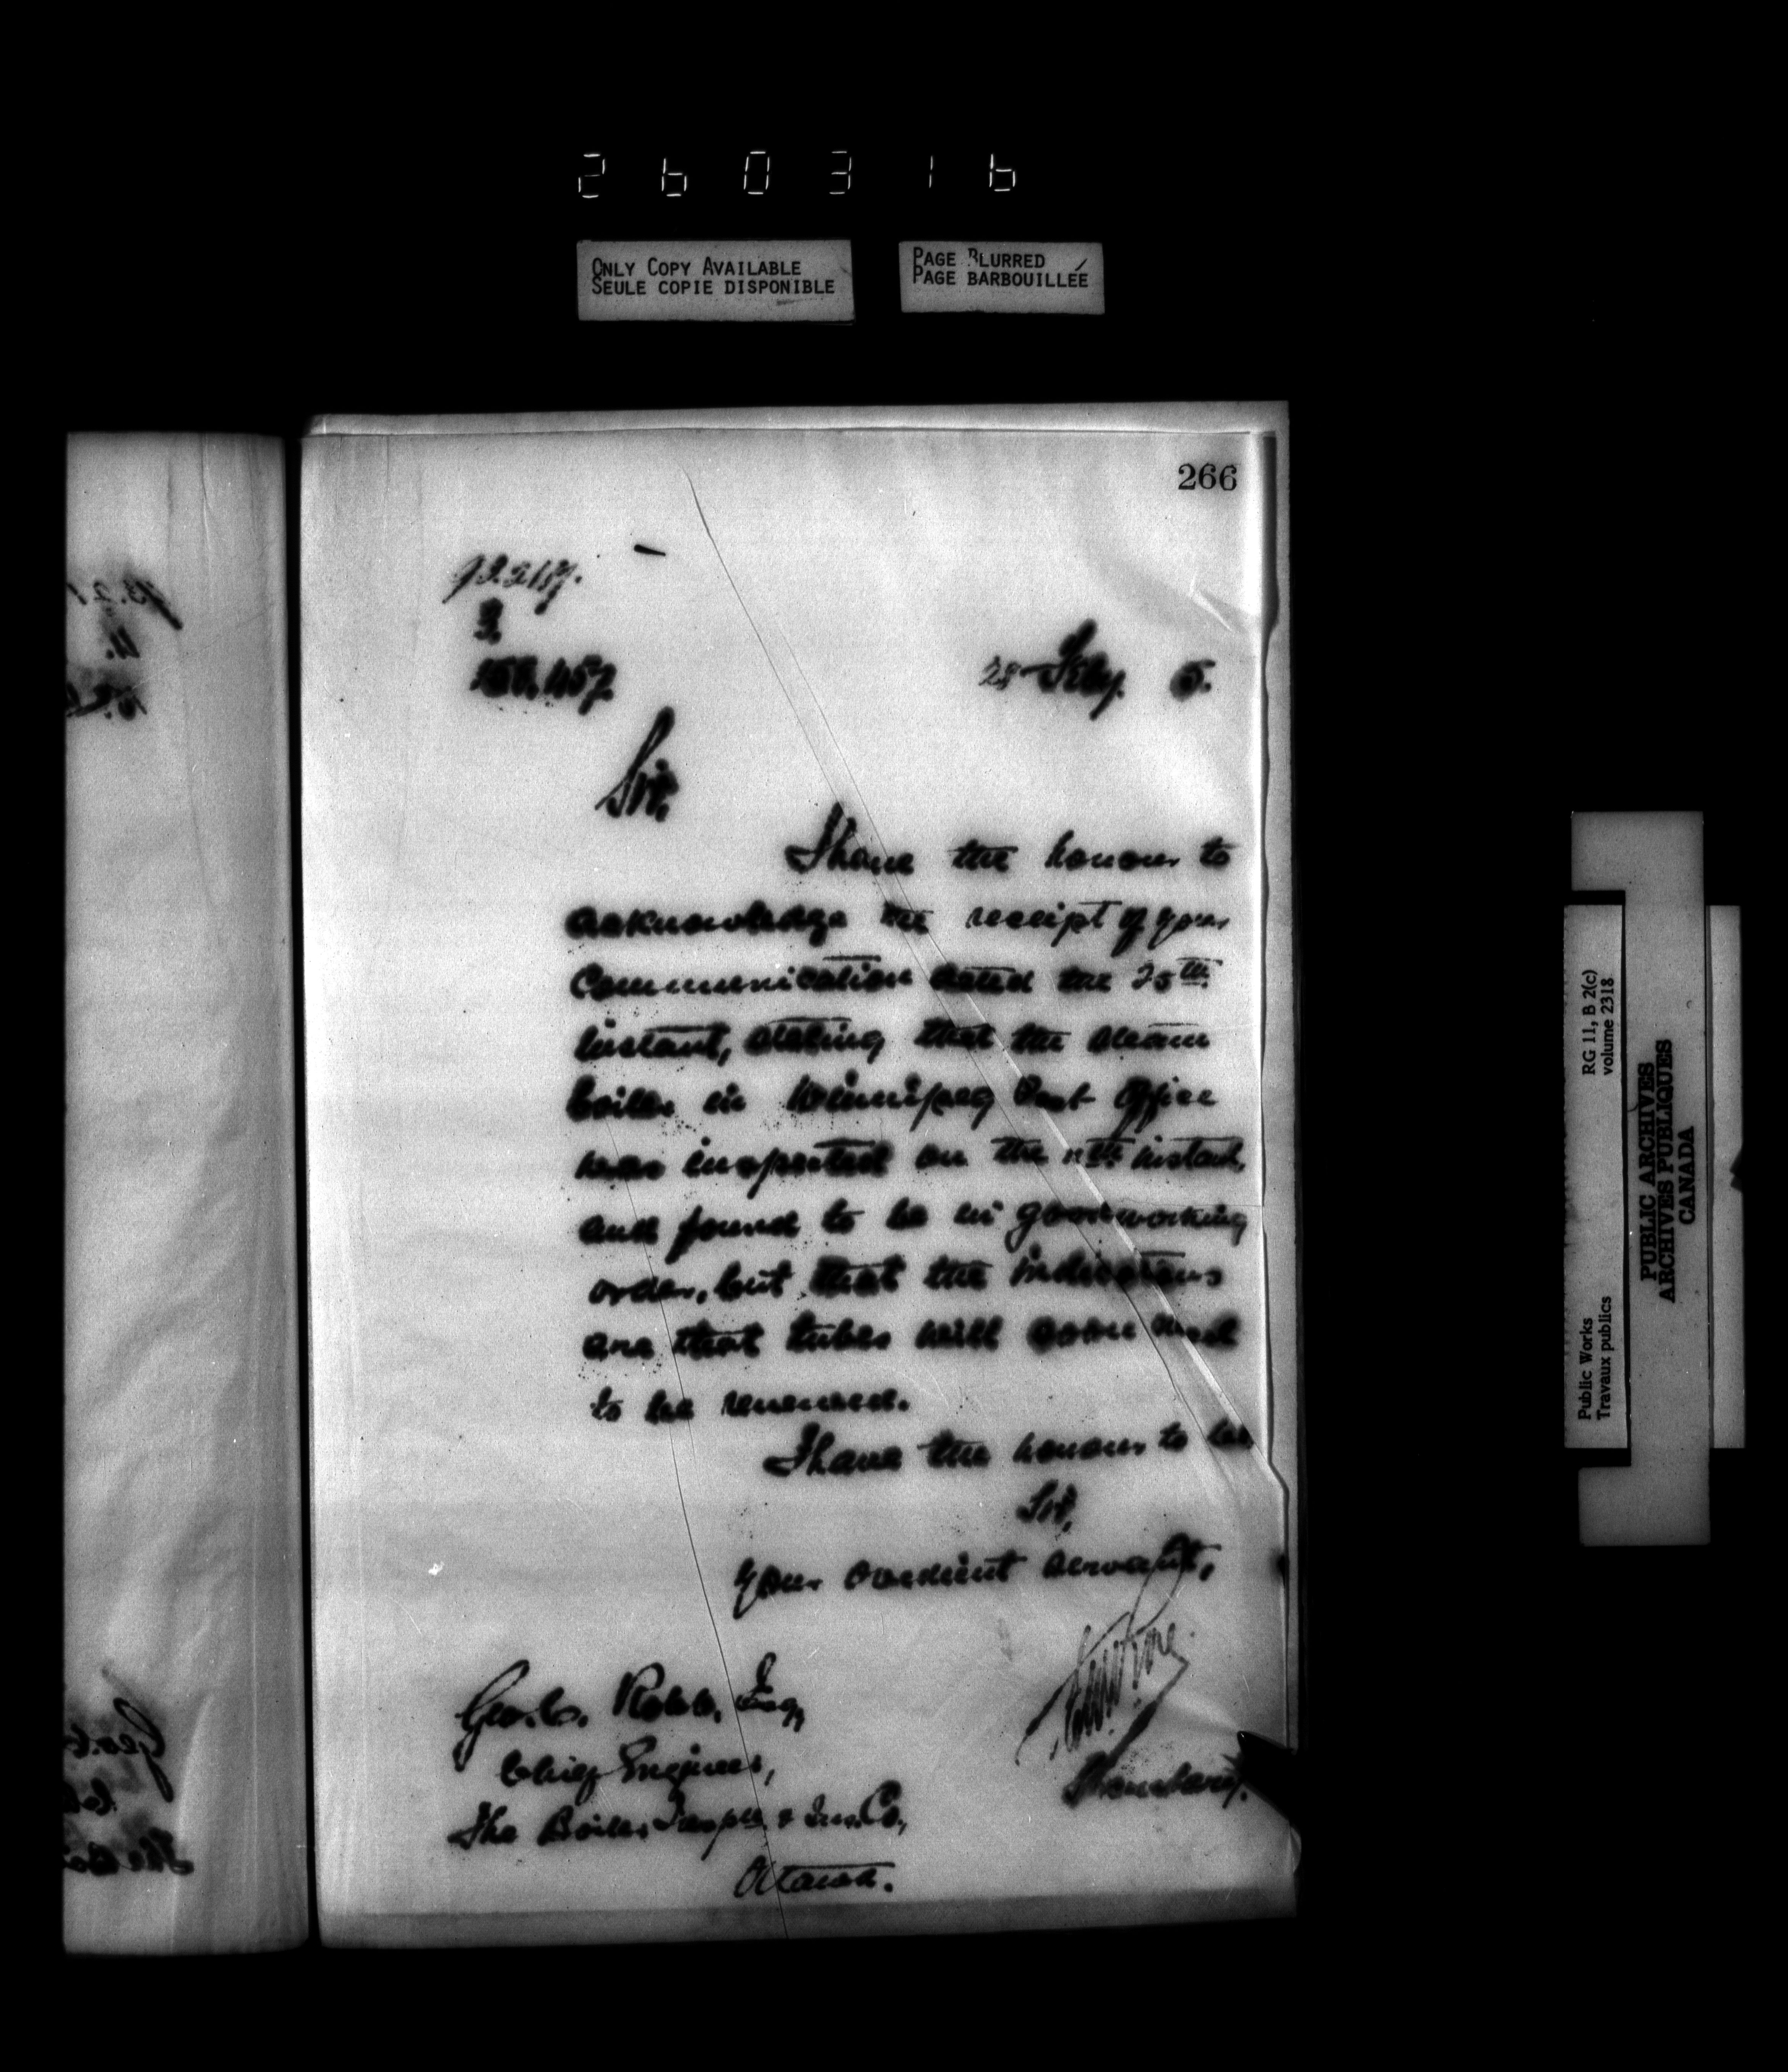 260316
ONLY COPY AVAILABLE
SEULE COPIE DISPONIBLE
PAGE BLURRED
PAGE BARBOUILLÉE
266
28 Feby. 5.
Sir,
I have the honour to
acknowledge the receipt of your
communication dated the 25th
instant, stating that the steam
boiler in Winnipeg Post Office
was inspected on the 11th instant,
and found to be in good working
order, but that the indications
are that tubes will soon need
to be renewed.
I have the honour to be
Sir,
Your obedient servant,
Geo. C. Robb, Esq,
Chief Engineer,
The Boiler Inspn. & Ins. Co.,
Ottawa.
Public Works
Travaux publics
RG 11, B 2(c)
volume 2318
PUBLIC ARCHIVES
ARCHIVES PUBLIQUES
CANADA